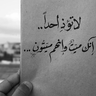 لا تؤذِ أحداً..
إنك ميتٌ وإنهم ميتون...